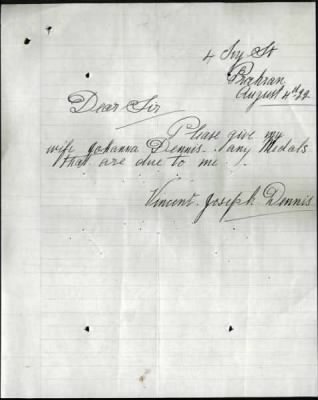 4 Ivy St
Prahran
August 4th 22
Dear Sir
Please give my
wife Johanna Dennis. any Medals
that are due to me.
Vincent. Joseph Dennis